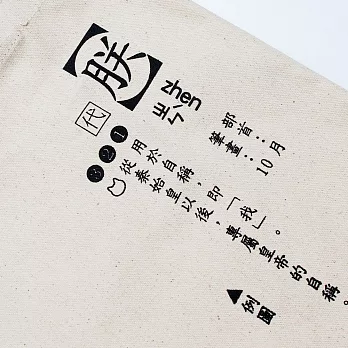 【朕】
zhen
ㄓㄣˋ
部首：月
筆畫：10
代
❶用於自稱，即「我」。
❷從秦始皇以後，專屬皇帝的自稱。
❸
▲例圖